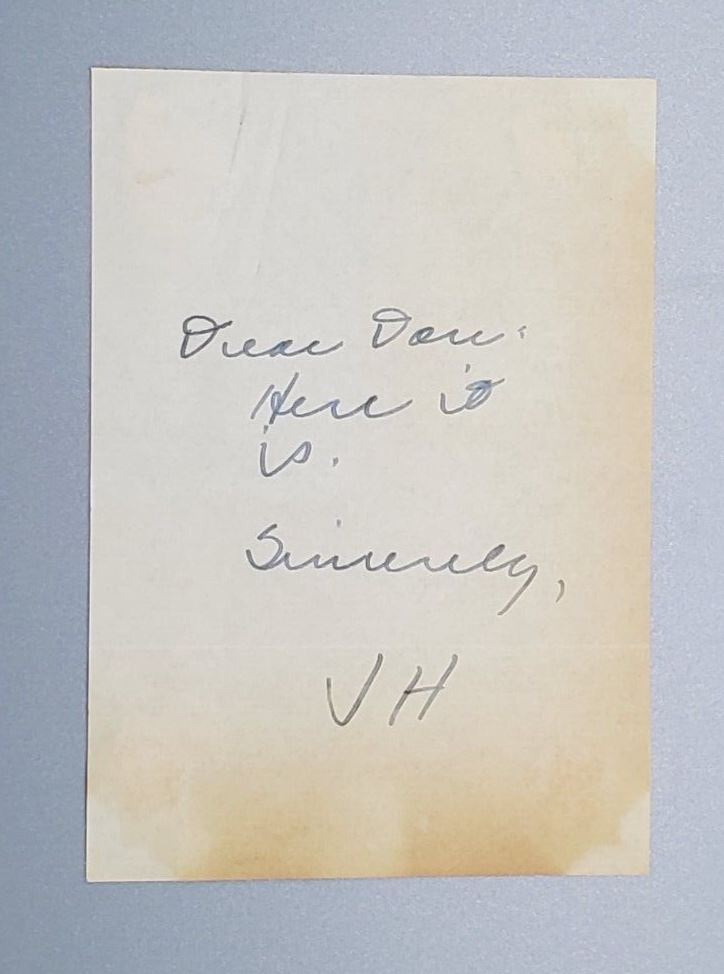 Dear Don:
Here it
is.
Sincerely,
JH